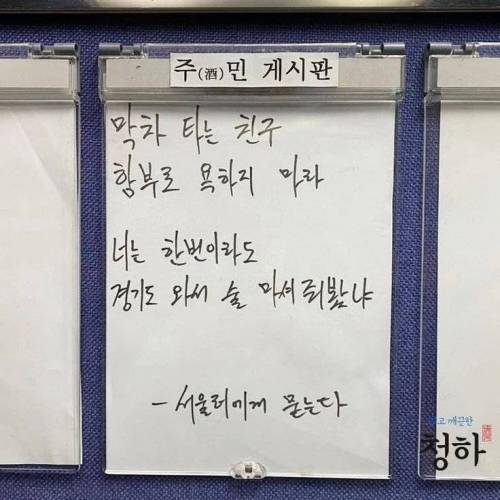 주(酒)민 게시판
막차 타는 친구
함부로 욕하지 마라
너는 한번이라도
경기도 와서 술 마셔줘봤냐
- 서울러에게 묻는다
고 깨끗한
청하